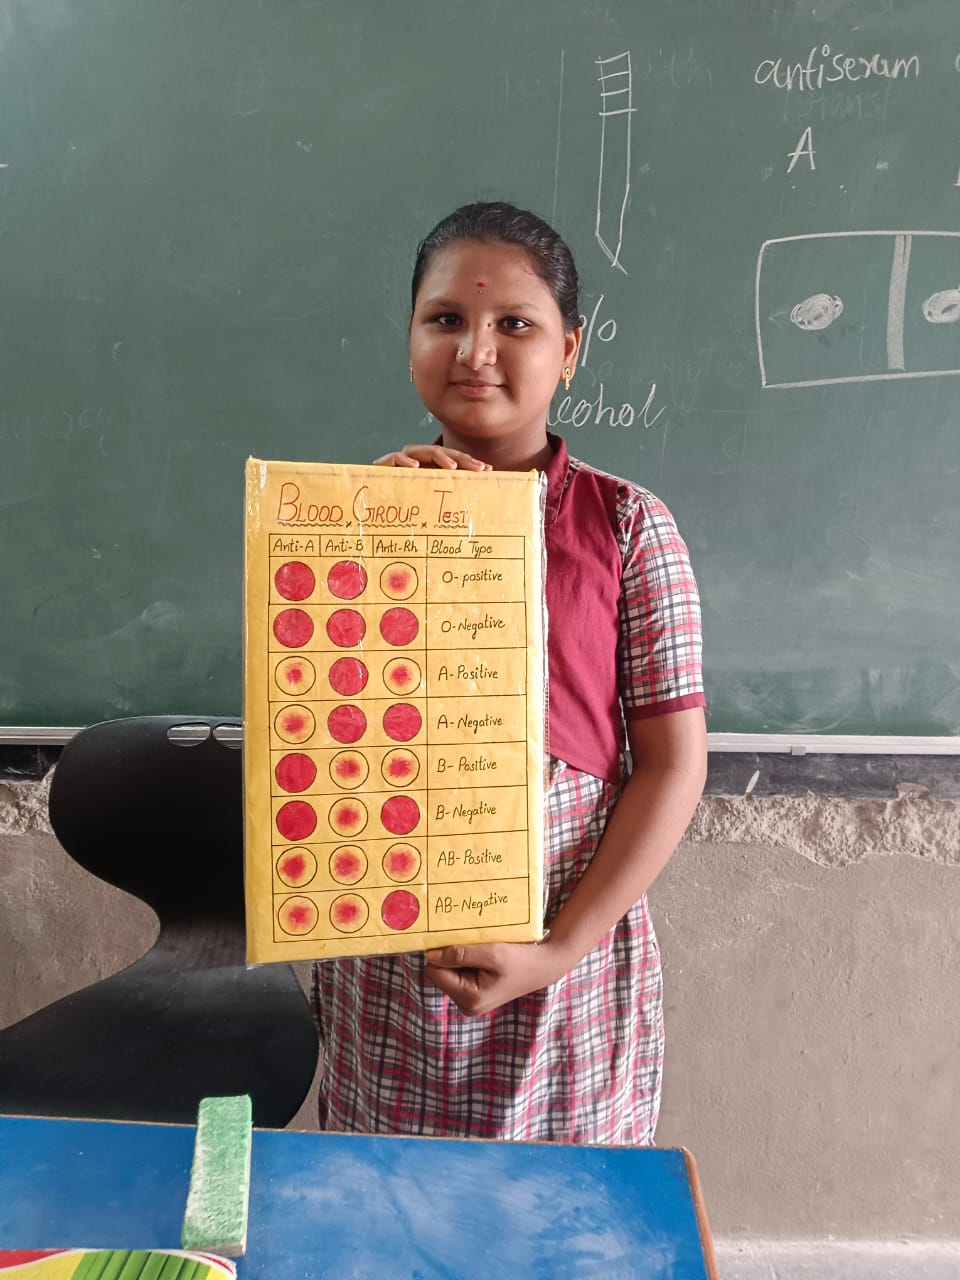 antiserum
A
%
cohol
BLOOD GROUP TEST
Anti-A Anti-B Anti-Rh Blood Type
O-positive
O-Negative
A-Positive
A-Negative
B-Positive
B-Negative
AB-Positive
AB-Negative